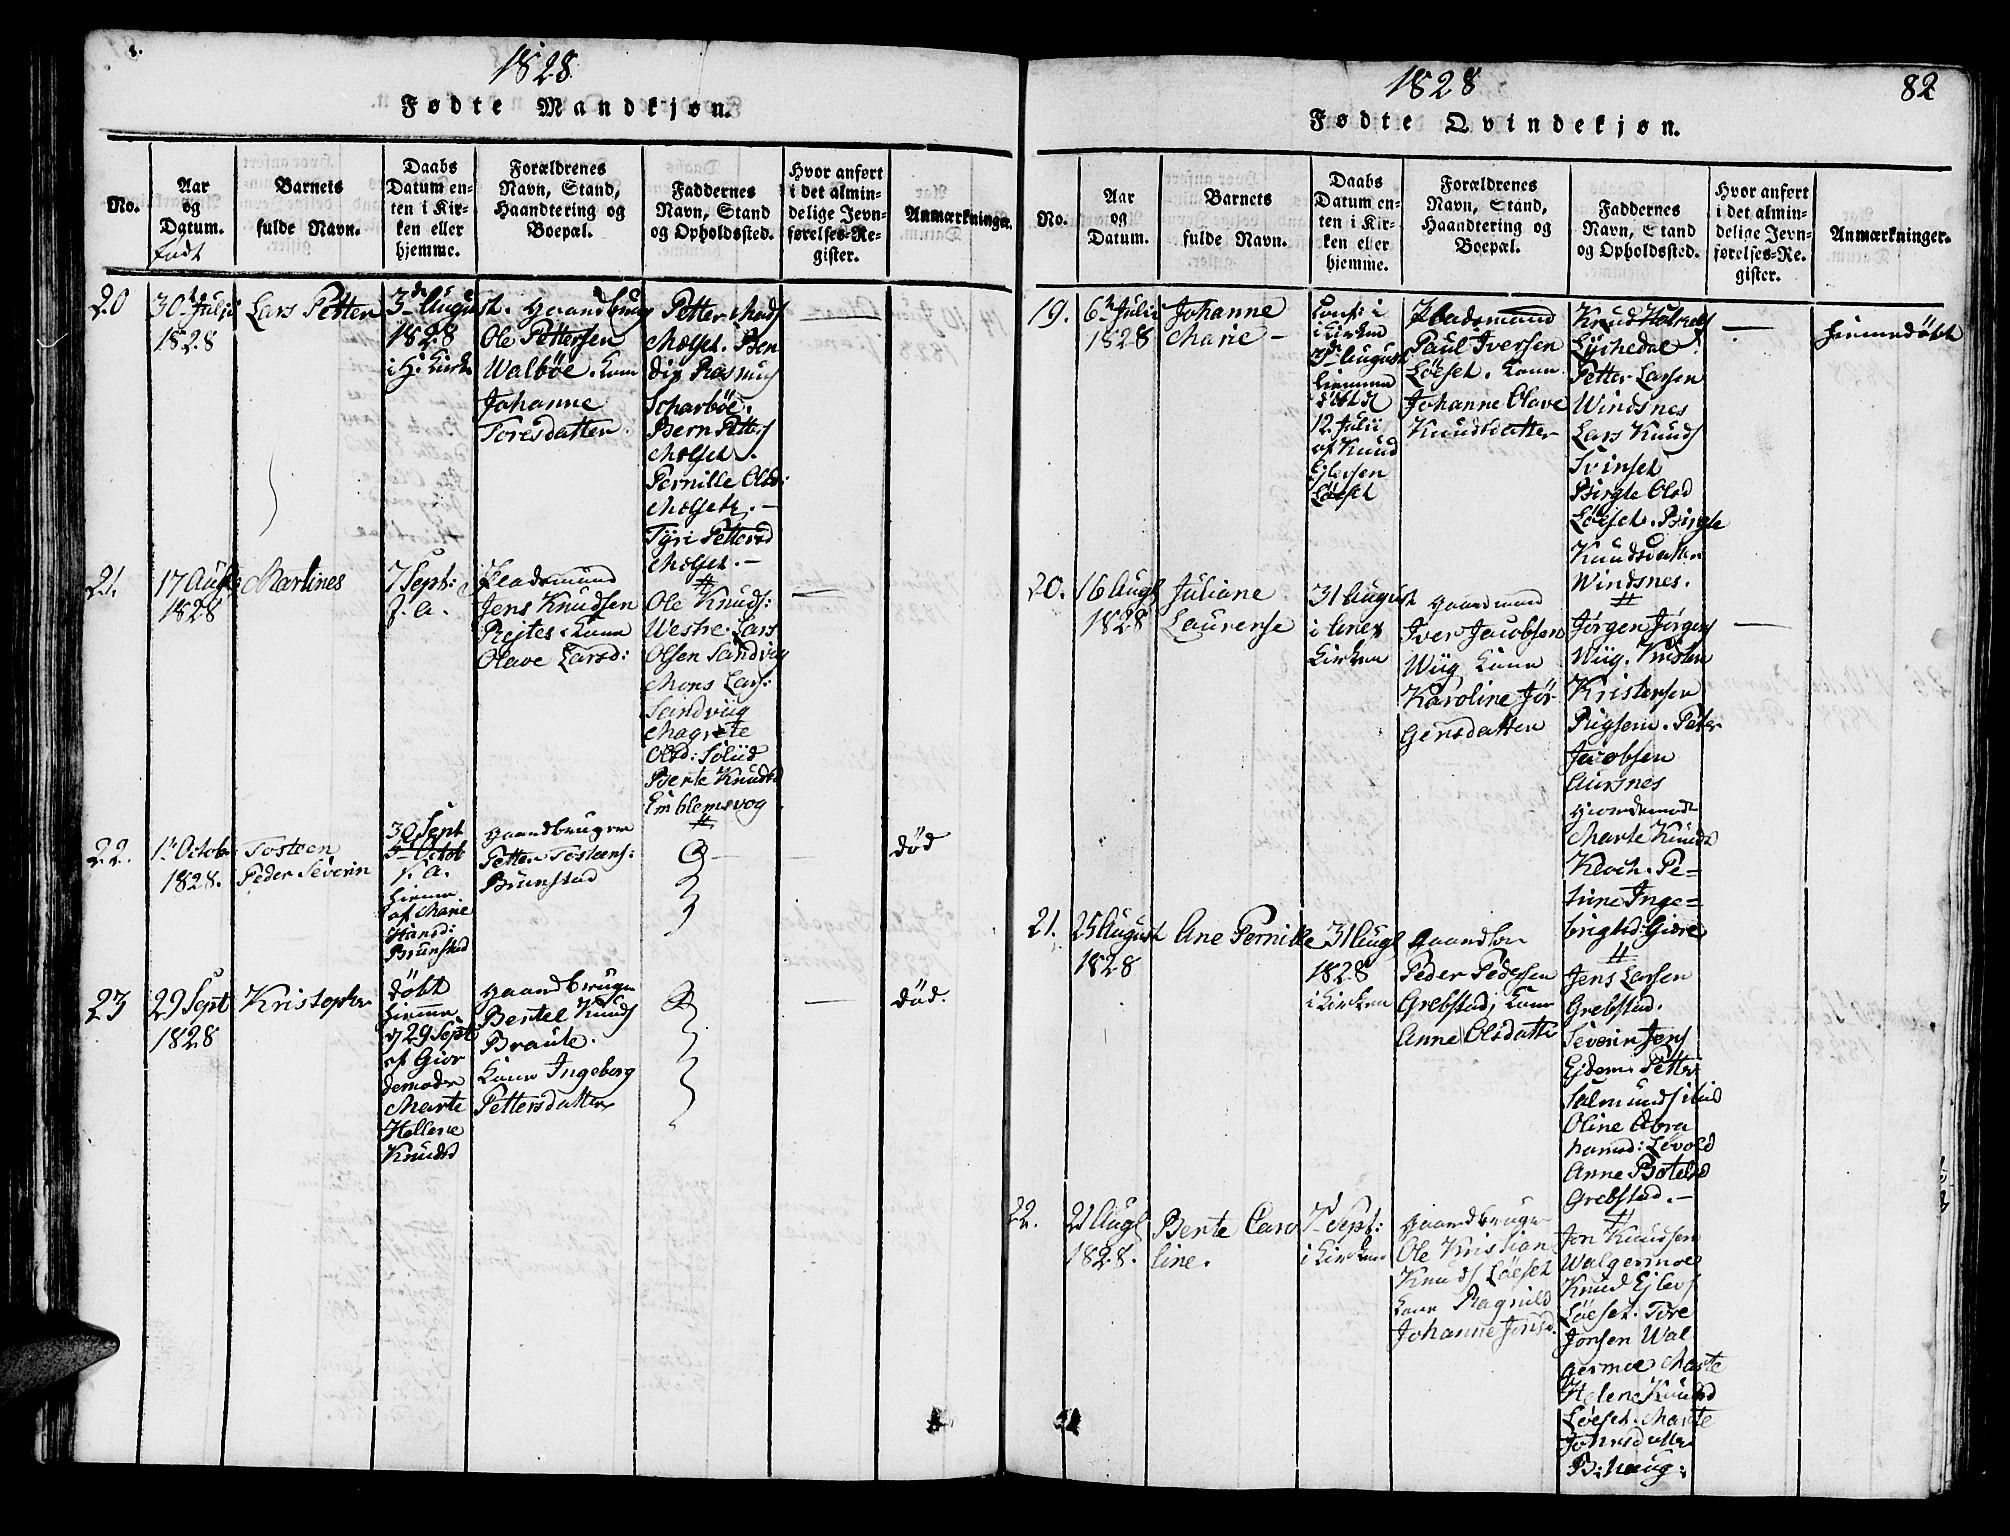 1828
Fødte Mandkjøn.
No.
Aar
og
Datum.
født
Barnets
fulde Navn.
Daabs
Datum en-
ten i Kir-
ken eller
hjemme.
Forældrenes
Navn, Stand,
Haandtering og
Boepæl.
Faddernes
Navn, Stand
og Opholdssted.
Hvor anført
i det almin-
delige Jevn-
førelses-Re-
gister.
Anmærkninger.
20
30t Julii
1828
Lars Petter
3de August
1828
i H: Kirke
Gaardbrug
Ole Pettersen
Walbøe. Kone
Johanne
Toresdatter.
Petter Mads
Molset. Ben
dix Rasmus
Scharbøe.
Bern Petters
Molset.
Pernille Olsd:
Molset. –
Tyri Pettersd
Molset. –
21.
17 Aug
1828
Martines
7 Sept:
f. a.
Pladsmand
Jens Knudsen
Rejtes. Kone
Olave Larsd:
Ole Knuds:
Westre. Lars
Olsen Sandvog
Mons Lars:
Sandvug
Magrete
Olsd: Soliid
Berte Knudsd
Emblemsvog
22.
1n Octobr
1828.
Tosteen
Peder Severin
30 Sept
5 Octob
f. a.
hiemme
af Marie
Hansd:
Brunstad
Gaardbruger
Petter Tosteens:
Brunstad
død
23
29 Sept
1828
Kristopher
døbt
hiemme
d 29 Sept
af Gior
demoder
Marte
Hellene
Knudsd
Gaardbruger
Bertel Knuds
Braute.
Kone Ingeborg
Pettersdatter
død.
1828
82
Fødte Qvindekjøn.
No.
Aar
og
Datum.
Barnets
fulde Navn.
Daabs
Datum en-
ten i Kir-
ken eller
hjemme.
Forældrenes
Navn, Stand,
Haandtering og
Boepæl.
Faddernes
Navn, Stand
og Opholdssted.
Hvor anført
i det almin-
delige Jevn-
førelses-Re-
gister.
Anmærkninger.
19.
6n Julii
1828
Johanne
Marie –
Conf: i
i Kirken
3de August
hiemme
døbt d
12 Julii
af Knud
Ejlersen
Løeset
Pladsmand
Paul Iversen
Løeset. Kone
Johanne Olave
Knudsdatter
Lychedal
Petter Larsen
Windsnes
Lars Knuds
Svinset
Birgte Olsd
Løeset. Birgte
Knudsdatter
Windsnes.
hiemmedøbt
20.
16 Augs
1828
Juliane
Laurense
31 August
i Ørskov
Kirken
Gaardmand
Iver Jacobsen
Wiig Kone
Karoline Jør
gensdatter
Jørgen Jørgens
Wiig. Kristen
Kristensen
Rigsem. Peter
Jacobsen
Aursnes
Giordemoder
Marte Knudsd
Kloch. Pe=
trine Inge=
brigtsd: Giære
21.
25 August
1828
Ane Pernille
31 Augs
1828
i Kirken
Gaardbr
Peder Pedersen
Grebstad, Kone
Anne Olsdatter
Jens Larsen
Grebstad.
Severin Jens
Ejdem. Petter
Salmunds
Oline Abra
hamsd: Løvold
Anne Botelsd
Grebstad. –
22.
21 Augs
1828.
Berte Caro
line.
7d Sept:
i Kirken
Gaardbruger
Ole Kristian
Knuds Løeset
Kone Ragnild
Johanne Jonsd.
Jon Knudsen
Walgermoe
Knud Ejlers
Løeset. Tore
Jonsen Wal
germoe Marte
Helene Knudsd
Løeset. Marte
Johnsdatter
B: haug: